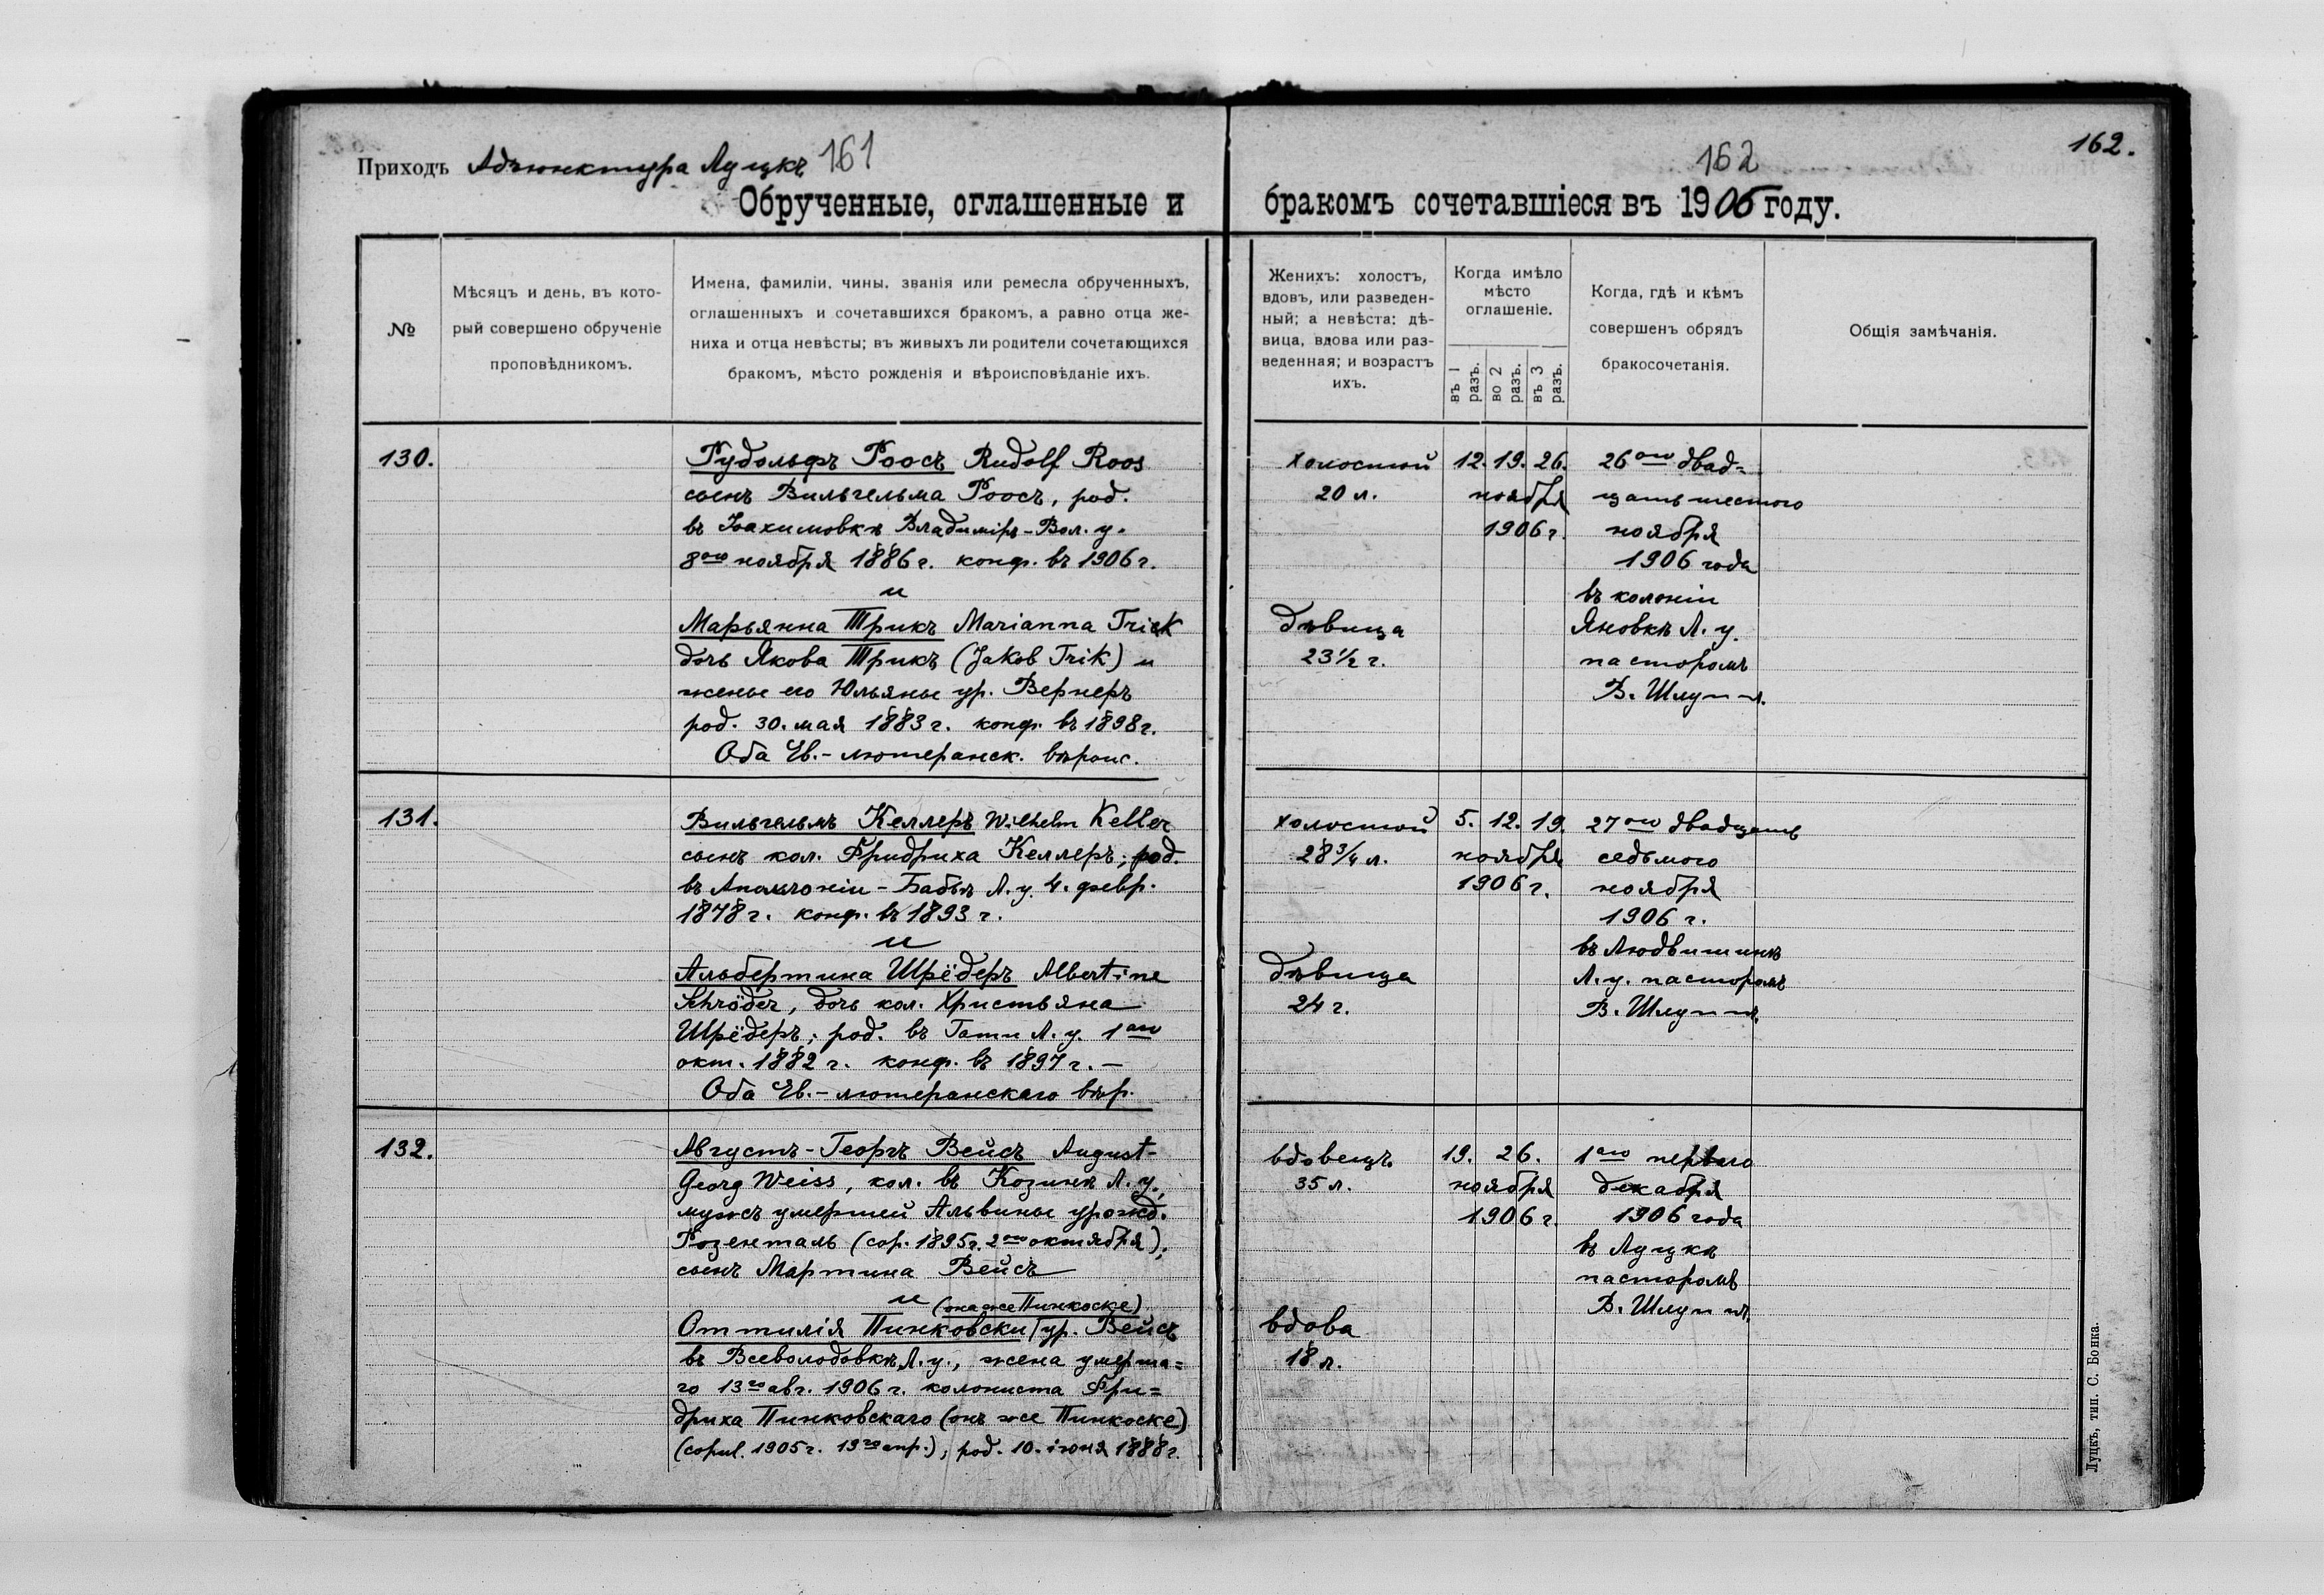 Приходъ Адъюнктура Луцкъ 161
Обрученные, оглашенные и
№
Мѣсяцъ и день, въ кото-
рый совершено обрученіе
проповѣдникомъ.
Имена, фамиліи, чины, званія или ремесла обрученныхъ,
оглашенныхъ и сочетавшихся бракомъ, а равно отца же-
ниха и отца невѣсты; въ живыхъ ли родители сочетающихся
бракомъ, мѣсто рожденія и вѣроисповѣданіе ихъ.
130.
Рудольфъ Роосъ Rudolf Roos
сынъ Вильгельма Роосъ, род.
въ Іоахимовкѣ Владимір-Вол. у.
8ого ноября 1886 г. конф. въ 1906 г.
и
Марьянна Трикъ Marianna Trick
дочь Якова Трикъ (Jakob Trik) и
жены его Юльяны ур. Вернеръ
род. 30. мая 1883 г. конф. въ 1898 г.
Оба Ев.-лютеранск. вѣроис.
131.
Вильгельмъ Келлеръ Wilhelm Keller
сынъ кол. Фридриха Келлеръ; род.
въ Аполлоніи-Бабьѣ Л. у. 4. февр.
1878 г. конф. въ 1893 г.
и
Альбертина Шрёдеръ Albertine
Schröder, дочь кол. Христьяна
Шрёдеръ; род. въ Гати Л. у. 1ого
окт. 1882 г. конф. въ 1897 г. —
Оба Ев.-лютеранскаго вѣр.
132.
Августъ-Георгъ Вейсъ August-
Georg Weiss, кол. въ Козинѣ Л. у.,
мужъ умершей Альвины урожд.
Розенталь (сор. 1895 г. 2ого октября);
сынъ Мартина Вейсъ
и (она же Пинкоске)
Оттилія Пинковски ур. Вейсъ
въ Всеволодовкѣ Л. у., жена умерша=
го 13го авг. 1906 г. колониста Фри=
дриха Пинковскаго (онъ же Пинкоске)
(сорил. 1905 г. 19го апр.), род. 10. іюня 1888 г.
162
162.
бракомъ сочетавшіеся въ 1906 году.
Женихъ: холостъ,
вдовъ, или разведен-
ный; а невѣста: дѣ-
вица, вдова или раз-
веденная; и возрастъ
ихъ.
Когда имѣло
мѣсто
оглашеніе.
въ 1 разъ.
во 2 разъ.
въ 3 разъ.
Когда, гдѣ и кѣмъ
совершенъ обрядъ
бракосочетанія.
Общія замѣчанія.
холостой
20 л.
12. 19. 26.
ноября
1906 г.
26ого двад=
цать шестого
ноября
1906 года
въ колоніи
Яновкѣ Л. у.
пасторомъ
В. Шлуппъ.
дѣвица
23½ г.
холостой
28¾ л.
5. 12. 19.
ноября
1906 г.
27ого двадцать
седьмого
ноября
1906 г.
въ Людвишинѣ
Л. у. пасторомъ
В. Шлуппъ.
дѣвица
24 г.
вдовецъ
35 л.
19. 26.
ноября
1906 г.
1аго перваго
декабря
1906 года
въ Луцкѣ
пасторомъ
В. Шлуппъ.
вдова
18 л.
Луцкъ, тип. С. Бонка.